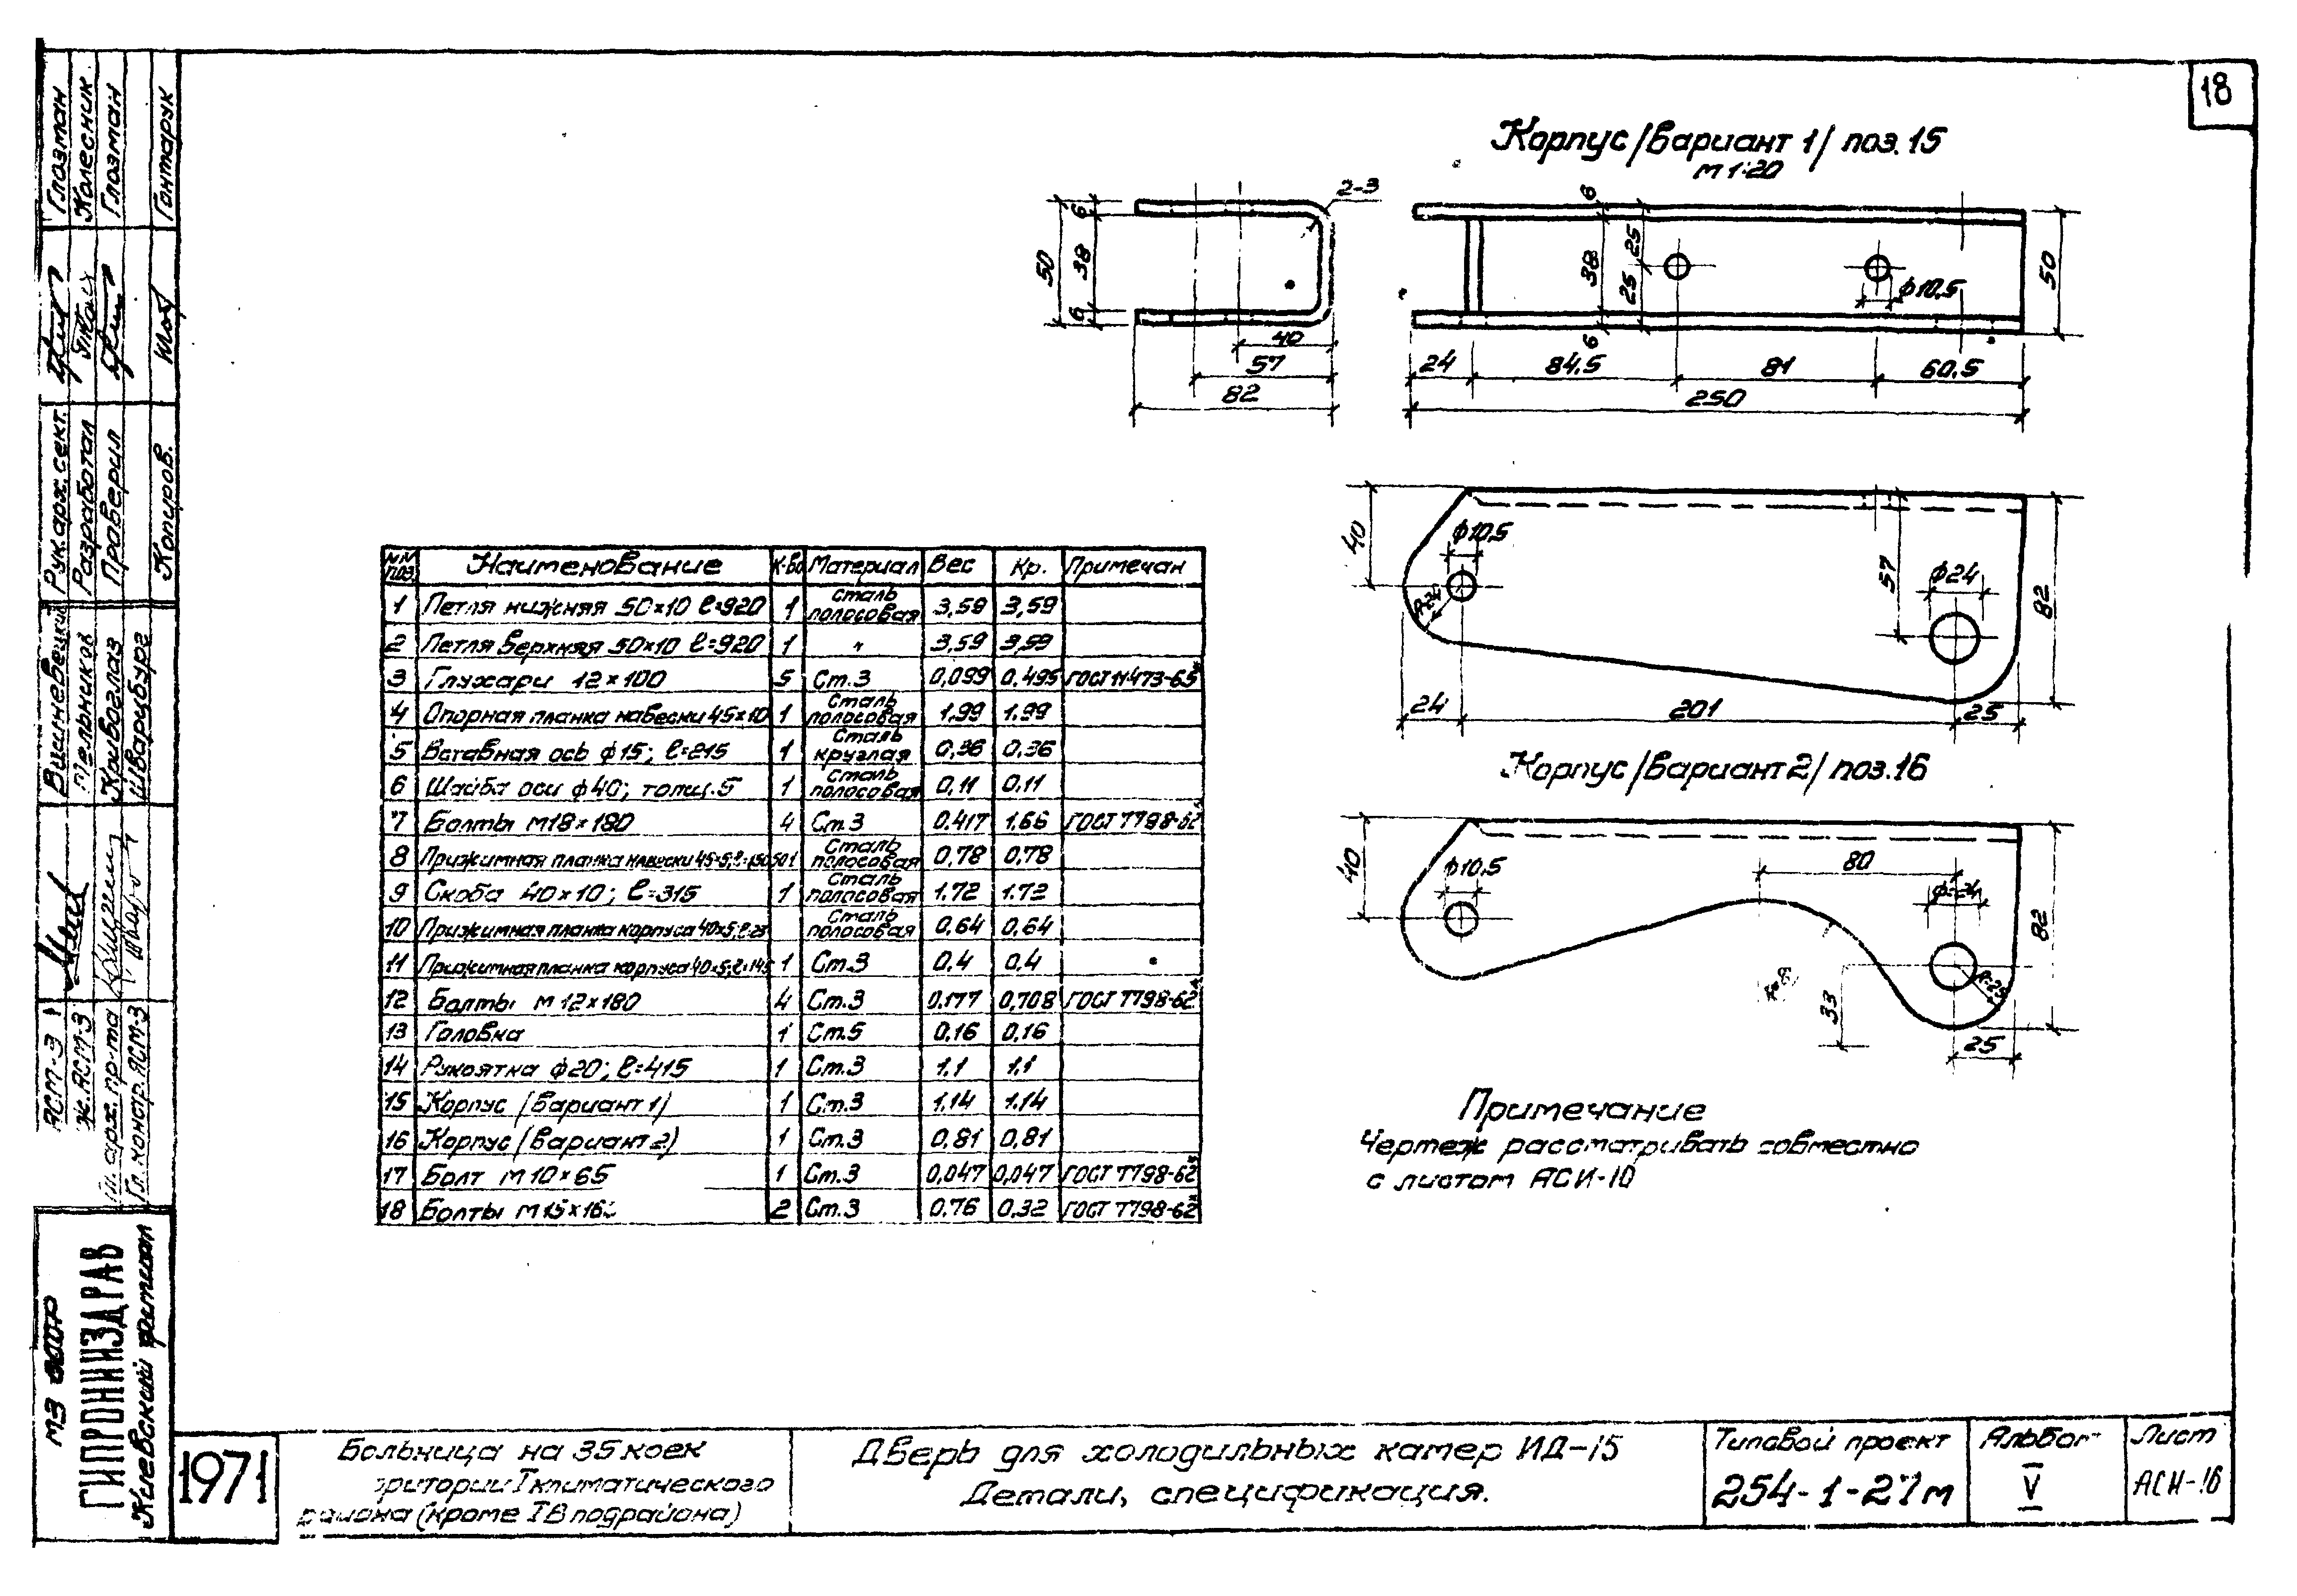 18
Корпус /вариант 1/ поз.15
М 1:20
2-3
50
6
38
6
40
57
82
6
38
6
25
25
ф10,5
50
24
84.5
81
60.5
250
40
ф10,5
57
ф24
82
24
201
25
Корпус /вариант 2/ поз.16
40
ф10,5
80
ф=24
82
33
R=25
25
Примечание
Чертеж рассматривать совместно
с листом АСИ-10
NN поз. Наименование К-во Материал Вес Кр. Примечан
1 Петля нижняя 50×10 ℓ=920 1 Сталь полосовая 3,59 3,59
2 Петля верхняя 50×10 ℓ=920 1 " 3,59 3,59
3 Глухари 12×100 5 Ст.3 0,099 0,495 ГОСТ 11473-65*
4 Опорная планка навески 45×10 1 Сталь полосовая 1.99 1.99
5 Вставная ось ф15; ℓ=215 1 Сталь круглая 0,36 0.36
6 Шайба оси ф40; толщ.5 1 Сталь полосовая 0,11 0.11
7 Болты М18×180 4 Ст.3 0.417 1.66 ГОСТ 7798-62*
8 Прижимная планка навески 45×5; 1 Сталь полосовая 0,78 0,78
9 Скоба 40×10; ℓ=315 1 Сталь полосовая 1.72 1.72
10 Прижимная планка корпуса 40×5; Сталь полосовая 0,64 0,64
11 Прижимная планка корпуса 40×5; ℓ=145 1 Ст.3 0.4 0.4
12 Болты М 12×180 4 Ст.3 0.177 0,708 ГОСТ 7798-62*
13 Головка 1 Ст.5 0.16 0,16
14 Рукоятка ф20; ℓ=415 1 Ст.3 1.1 1.1
15 Корпус /вариант 1/ 1 Ст.3 1.14 1.14
16 Корпус (вариант 2) 1 Ст.3 0,81 0,81
17 Болт М10×65 1 Ст.3 0,047 0,047 ГОСТ 7798-62*
18 Болты 2 Ст.3 0.76 0.32 ГОСТ 7798-62*
Рук.арх.сект. Глозман
Разработал Колесник
Проверил Глозман
Копиров. Гонтарук
АСМ-3 Вишневецкий
АСМ-3 Мельников
арх. пр-та Кривоглаз
Гл. констр. АСМ-3 Шварцбург
МЗ
ГИПРОНИИЗДРАВ
Киевский филиал
1971
Больница на 35 коек
I климатического
района (кроме IВ подрайона)
Дверь для холодильных камер ИД-15
Детали, спецификация.
Типовой проект
254-1-27м
Альбом
V
Лист
АСИ-16